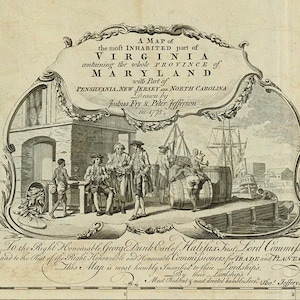 A MAP of
the most INHABITED part of
VIRGINIA
containing the whole PROVINCE of
MARYLAND
with Part of
PENSILVANIA, NEW JERSEY AND NORTH CAROLINA
Drawn by
Joshua Fry & Peter Jefferson
in 1775.
To the Right Honourable, George Dunk Earl of Halifax First Lord Commiss
and to the Rest of the Right Honourable and Honourable Commissioners, for TRADE and PLANTA
This Map is most humbly Inscribed to their Lordships,
By their Lordship's
Most Obedient & most devoted humble Serv.t Tho.s Jeffer